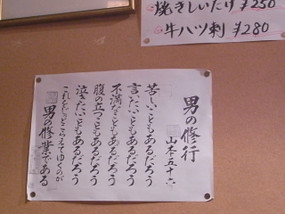 焼きしいたけ ¥250
牛ハツ刺 ¥280
男の修行
山本五十六
苦しいこともあるだろう
言いたいこともあるだろう
不満なこともあるだろう
腹の立つこともあるだろう
泣きたいこともあるだろう
これらをじっとこらえてゆくのが
男の修業である